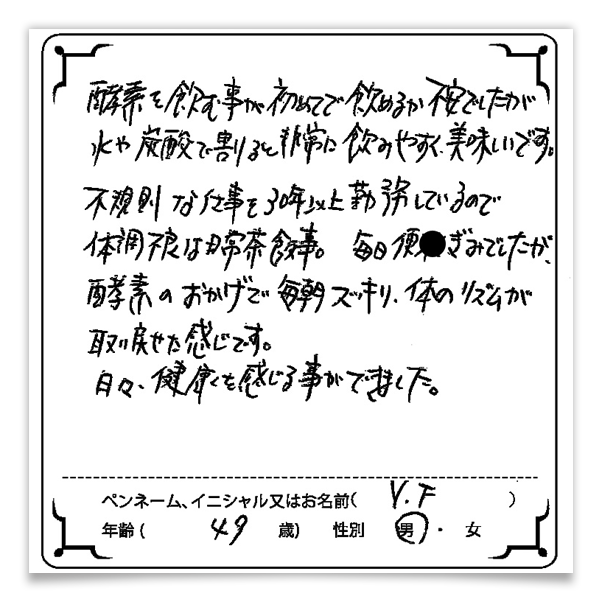 酵素を飲む事が初めてで飲めるか不安でしたが
水や炭酸で割ると非常に飲みやすく、美味いです。
不規則な仕事を30年以上勤務しているので
体調不良は日常茶飯事。毎日便●ぎみでしたが、
酵素のおかげで毎朝スッキリ、体のリズムが
取り戻せた感じです。
日々、健康を感じる事ができました。
ペンネーム、イニシャル又はお名前( Y.F )
年齢( 49 歳) 性別 男・女